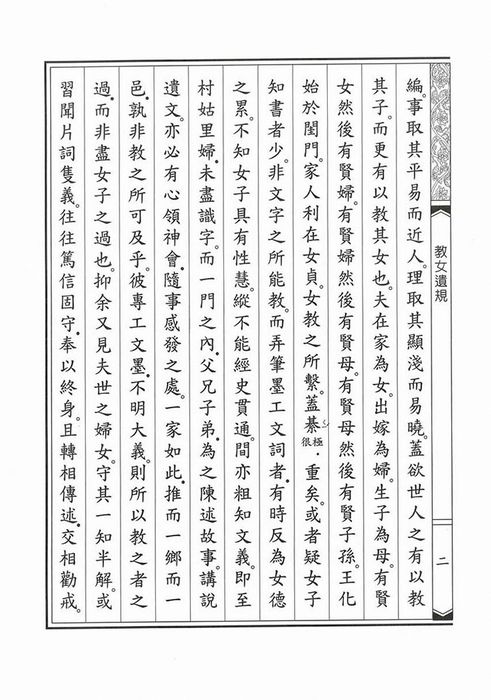 教女遺規
二
編。事取其平易而近人。理取其顯淺而易曉。蓋欲世人之有以教
其子。而更有以教其女也。夫在家為女。出嫁為婦。生子為母。有賢
女然後有賢婦。有賢婦然後有賢母。有賢母然後有賢子孫。王化
始於閨門。家人利在女貞。女教之所繫。蓋綦很極．重矣。或者疑女子
知書者少。非文字之所能教。而弄筆墨工文詞者。有時反為女德
之累。不知女子具有性慧。縱不能經史貫通。間亦粗知文義。即至
村姑里婦。未盡識字。而一門之內。父兄子弟。為之陳述故事。講說
遺文。亦必有心領神會。隨事感發之處。一家如此。推而一鄉而一
邑。孰非教之所可及乎。彼專工文墨。不明大義。則所以教之者之
過。而非盡女子之過也。抑余又見夫世之婦女。守其一知半解。或
習聞片詞隻義。往往篤信固守。奉以終身。且轉相傳述。交相勸戒。